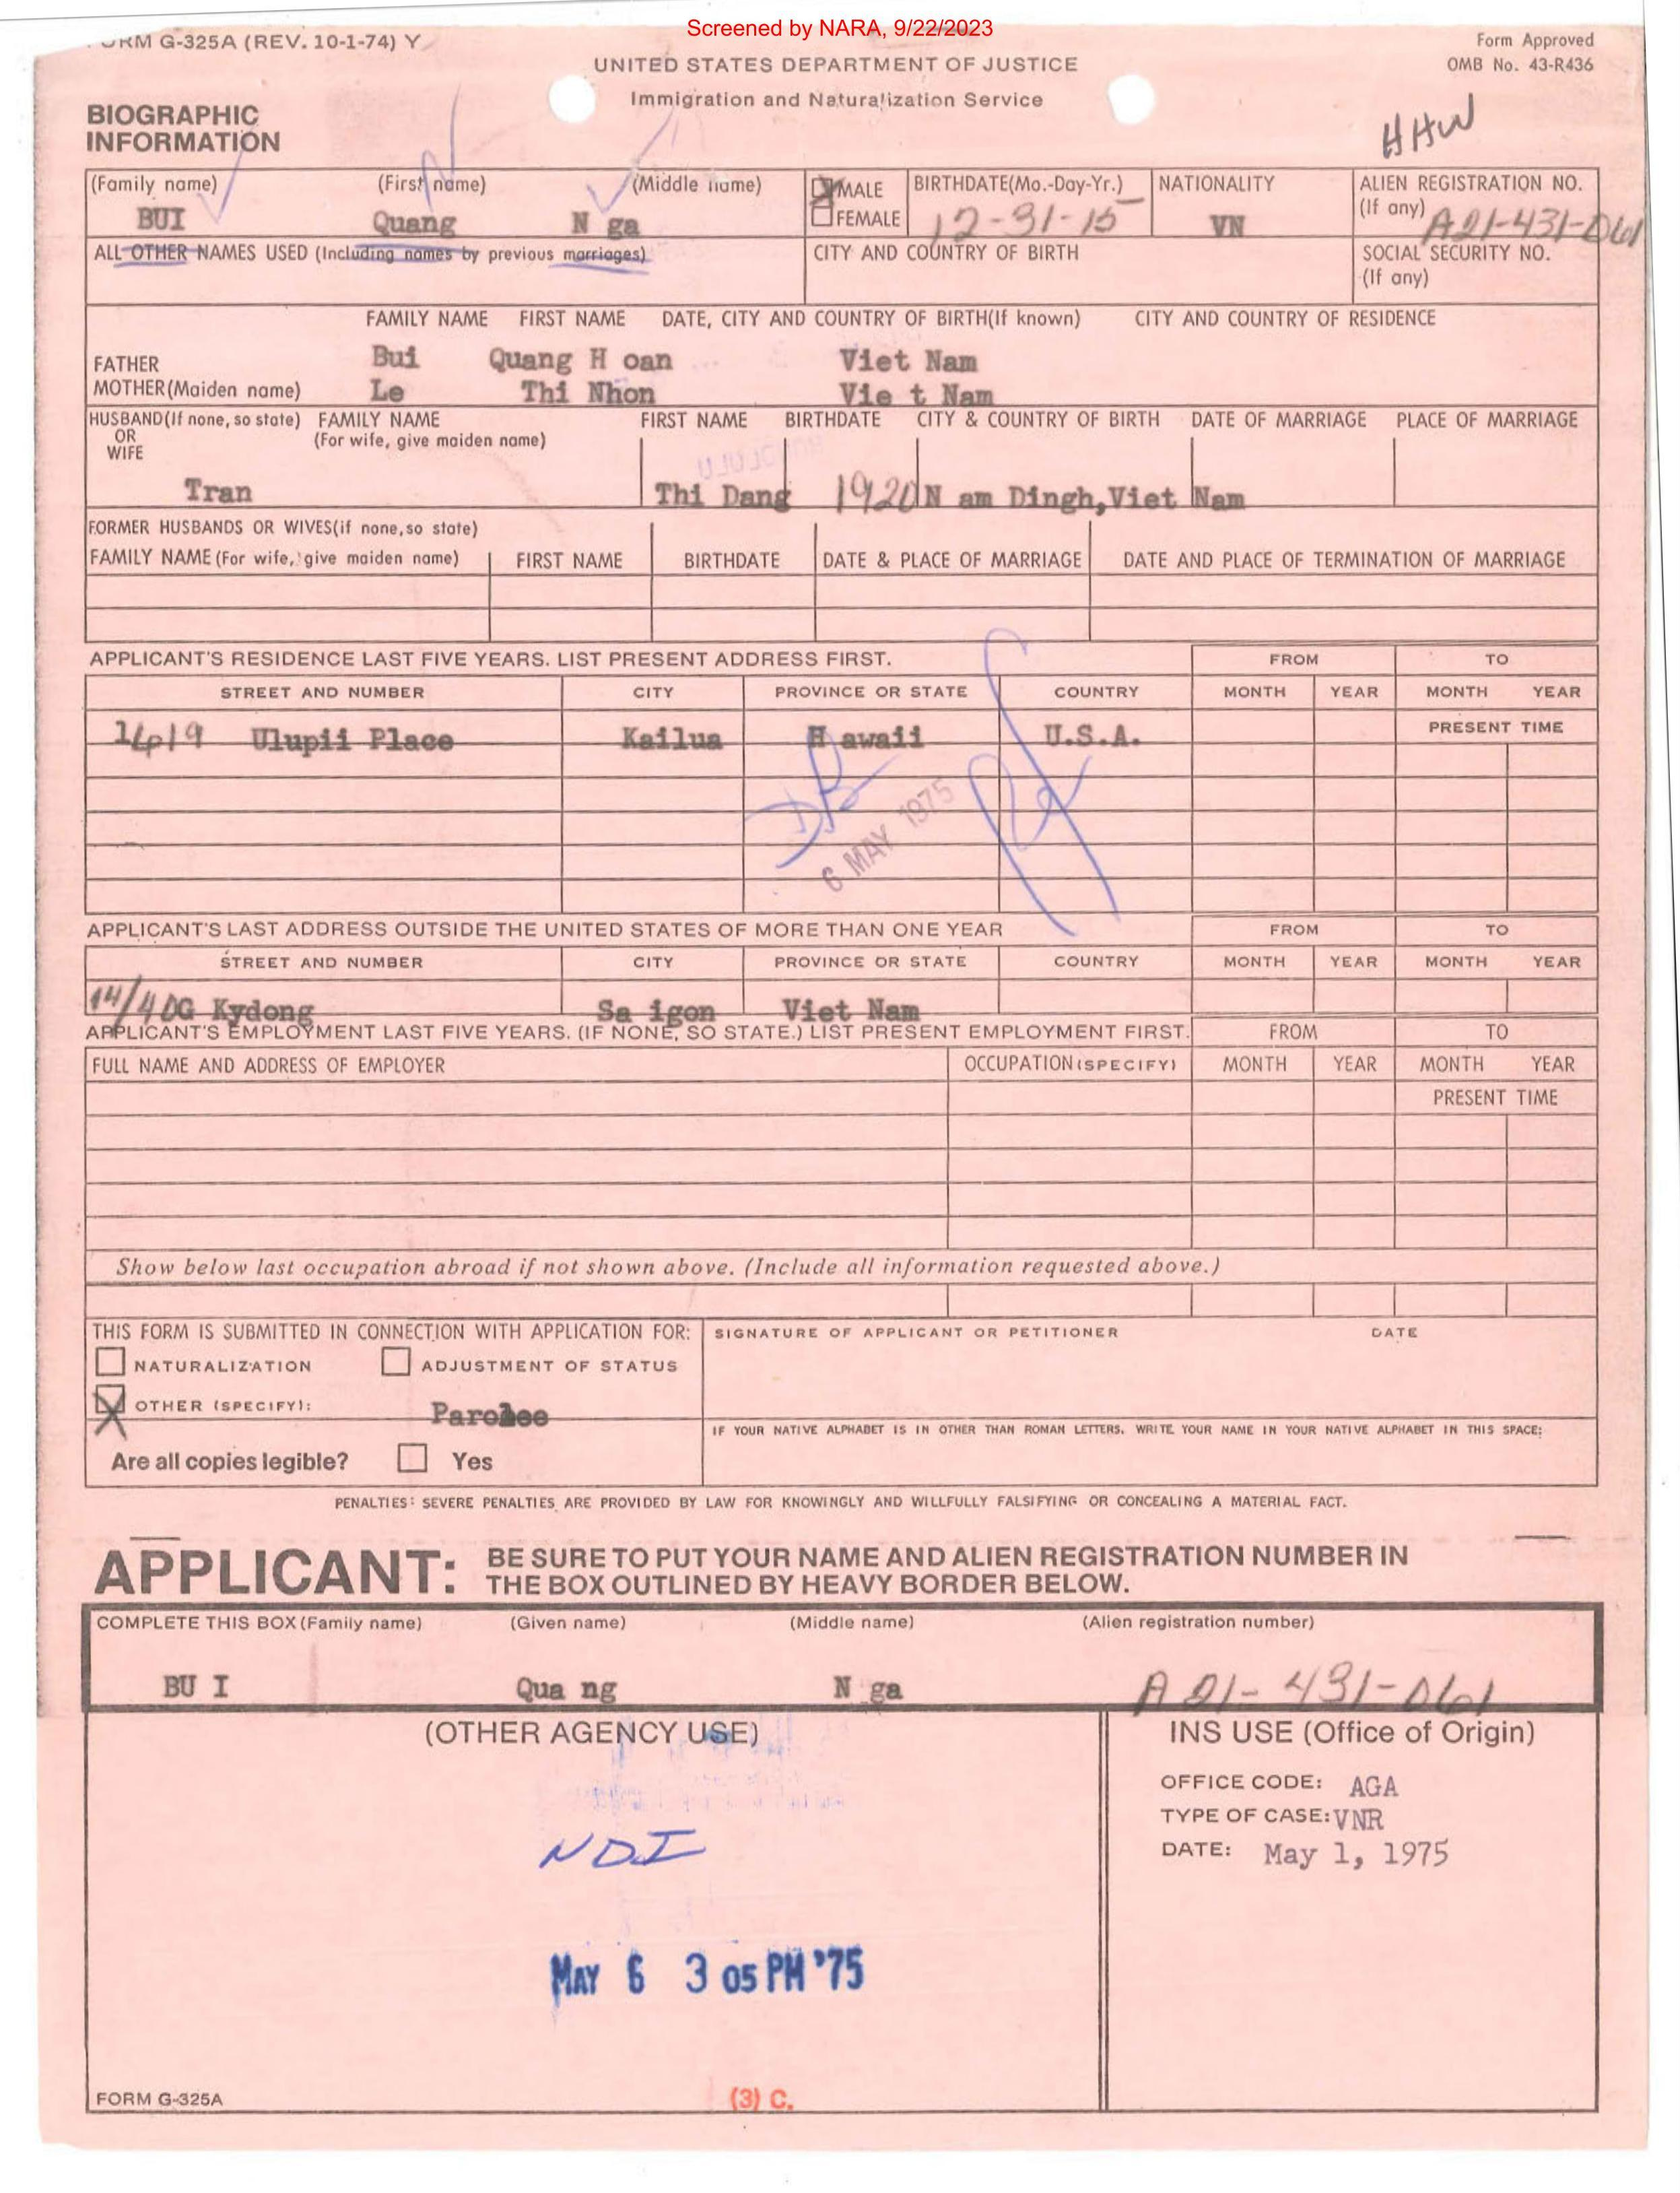 Screened by NARA, 9/22/2023
FORM G-325A (REV. 10-1-74) Y
Form Approved
OMB No. 43-R436
UNITED STATES DEPARTMENT OF JUSTICE
Immigration and Naturalization Service
BIOGRAPHIC
INFORMATION
HHW
(Family name) (First name) (Middle name) MALE BIRTHDATE(Mo.-Day-Yr.) NATIONALITY ALIEN REGISTRATION NO.
(If any)
BUI Quang N ga FEMALE 12-31-15 VN A21-431-061
ALL OTHER NAMES USED (Including names by previous marriages) CITY AND COUNTRY OF BIRTH SOCIAL SECURITY NO.
(If any)
FAMILY NAME FIRST NAME DATE, CITY AND COUNTRY OF BIRTH(If known) CITY AND COUNTRY OF RESIDENCE
FATHER Bui Quang H oan Viet Nam
MOTHER(Maiden name) Le Thi Nhon Vie t Nam
HUSBAND(If none, so state) FAMILY NAME FIRST NAME BIRTHDATE CITY & COUNTRY OF BIRTH DATE OF MARRIAGE PLACE OF MARRIAGE
OR (For wife, give maiden name)
WIFE
Tran Thi Dang 1920 N am Dingh,Viet Nam
FORMER HUSBANDS OR WIVES(if none,so state)
FAMILY NAME (For wife, give maiden name) FIRST NAME BIRTHDATE DATE & PLACE OF MARRIAGE DATE AND PLACE OF TERMINATION OF MARRIAGE
APPLICANT'S RESIDENCE LAST FIVE YEARS. LIST PRESENT ADDRESS FIRST. FROM TO
STREET AND NUMBER CITY PROVINCE OR STATE COUNTRY MONTH YEAR MONTH YEAR
PRESENT TIME
Ulupii Place Kailua H awaii U.S.A.
6 MAY 1975
APPLICANT'S LAST ADDRESS OUTSIDE THE UNITED STATES OF MORE THAN ONE YEAR FROM TO
STREET AND NUMBER CITY PROVINCE OR STATE COUNTRY MONTH YEAR MONTH YEAR
14/4 DG Kydong Sa igon Viet Nam
APPLICANT'S EMPLOYMENT LAST FIVE YEARS. (IF NONE, SO STATE.) LIST PRESENT EMPLOYMENT FIRST. FROM TO
FULL NAME AND ADDRESS OF EMPLOYER OCCUPATION(SPECIFY) MONTH YEAR MONTH YEAR
PRESENT TIME
Show below last occupation abroad if not shown above. (Include all information requested above.)
THIS FORM IS SUBMITTED IN CONNECTION WITH APPLICATION FOR: SIGNATURE OF APPLICANT OR PETITIONER DATE
NATURALIZATION ADJUSTMENT OF STATUS
OTHER (SPECIFY): Parolee
IF YOUR NATIVE ALPHABET IS IN OTHER THAN ROMAN LETTERS, WRITE YOUR NAME IN YOUR NATIVE ALPHABET IN THIS SPACE:
Are all copies legible? Yes
PENALTIES: SEVERE PENALTIES ARE PROVIDED BY LAW FOR KNOWINGLY AND WILLFULLY FALSIFYING OR CONCEALING A MATERIAL FACT.
APPLICANT: BE SURE TO PUT YOUR NAME AND ALIEN REGISTRATION NUMBER IN
THE BOX OUTLINED BY HEAVY BORDER BELOW.
COMPLETE THIS BOX (Family name) (Given name) (Middle name) (Alien registration number)
BU I Qua ng N ga A 21-431-061
(OTHER AGENCY USE) INS USE (Office of Origin)
OFFICE CODE: AGA
TYPE OF CASE: VNR
DATE: May 1, 1975
NDI
MAY 6 3 05 PM '75
FORM G-325A (3) C.